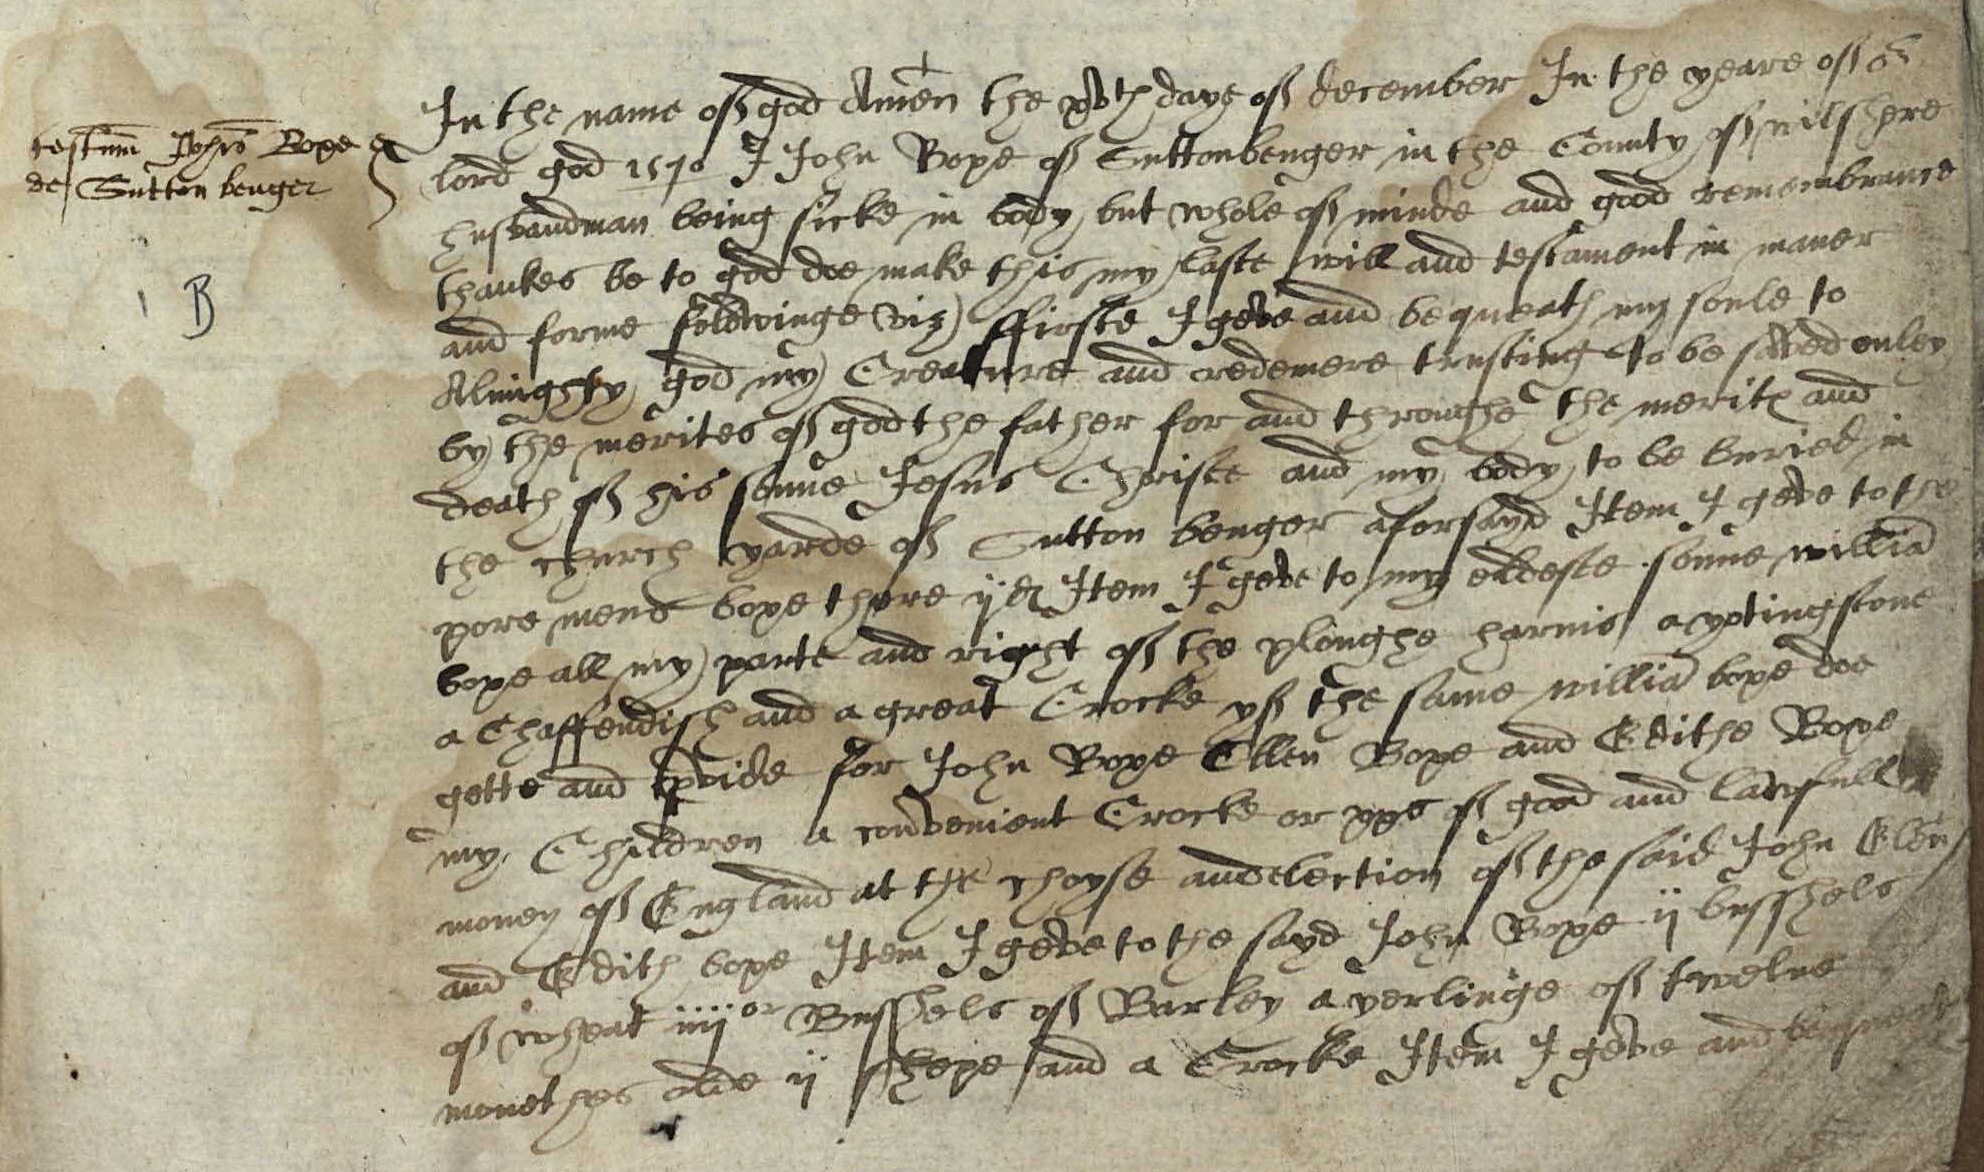 testum Johis Bope
de Sutton benger
B
In the name off god Amen the xvth daye off december In the yeare off or
lord god 1570 I John Bope off Suttonbenger in the County off wilshere
husbandman being sicke in body but whole off minde and good remembrance
thankes be to god doe make this my laste will and testament in maner
and forme folowinge viz) ffirste I geve and bequeath my soule to
Almighty god my Creature and redemere trusting to be saved onley
by the merites off god the father for and throughe the merits and
death off his sonne Jesus Christe and my body to be buried in
the church yarde off Sutton benger aforsayd Item I geve to the
pore mens boxe there ijd Item I geve to my eldeste sonne willia
bope all my parte and right off the ploughe harnis a
a Chaffendish and a great Crocke yff the same willia bope doe
gette and pvide for John Bope Ellen Bope and Edithe Bope
my Children a convenient Crocke or off good and lawfull
money off England at the choyse and election off the said John Elen
and Edith bope Item I geve to the sayd John Bope ij busshels
off wheat iiijor Busshels off Barley a yerlinge off twelue
monethes olde ij shepe and a Crocke Item I geve and bequeath